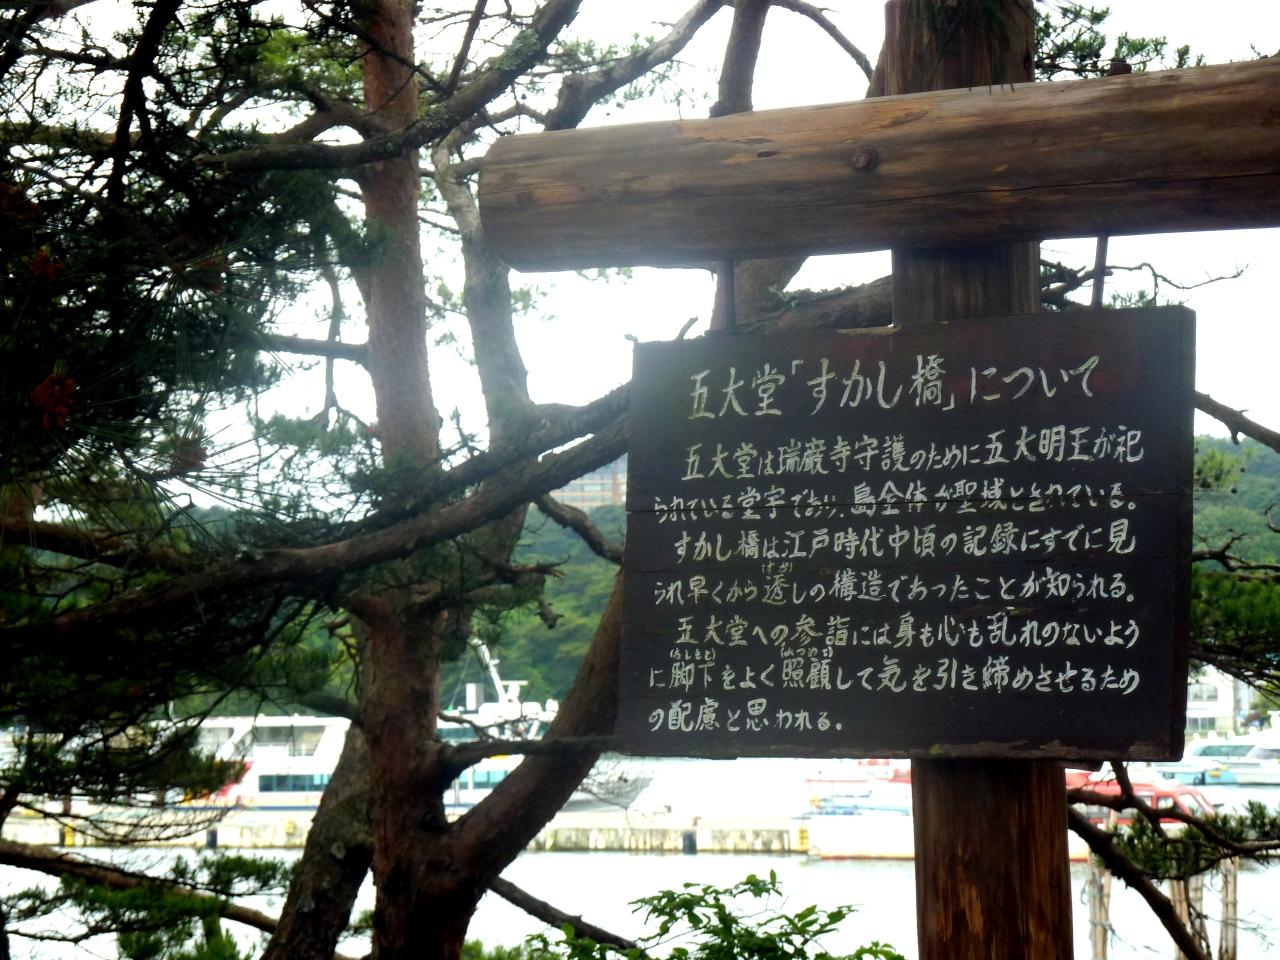 五大堂「すかし橋」について
五大堂は瑞巌寺守護のために五大明王が祀
られている堂宇であり、島全体が聖域とされている。
すかし橋は江戸時代中頃の記録にすでに見
すか
られ早くから透しの構造であったことが知られる。
五大堂への参詣には身も心も乱れのないよう
あしもと
に脚下をよく照顧して気を引き締めさせるため
の配慮と思われる。